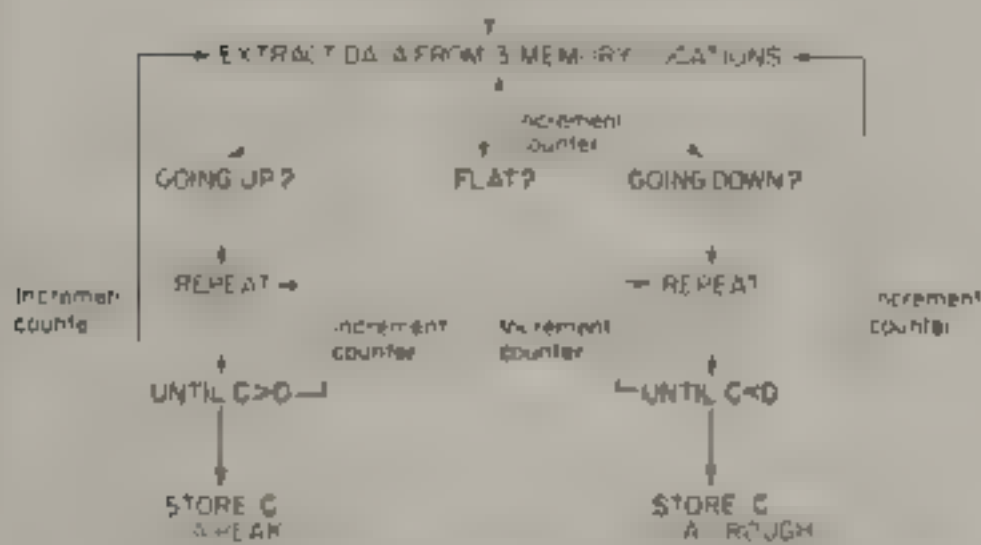 EXTRACT DATA FROM 3 MEMORY LOCATIONS
Increment
counter
GOING UP?
FLAT?
GOING DOWN?
REPEAT
REPEAT
Increment
counter
Increment
counter
Increment
counter
Increment
counter
UNTIL C>D
UNTIL C<D
STORE C
STORE C
PEAK
TROUGH